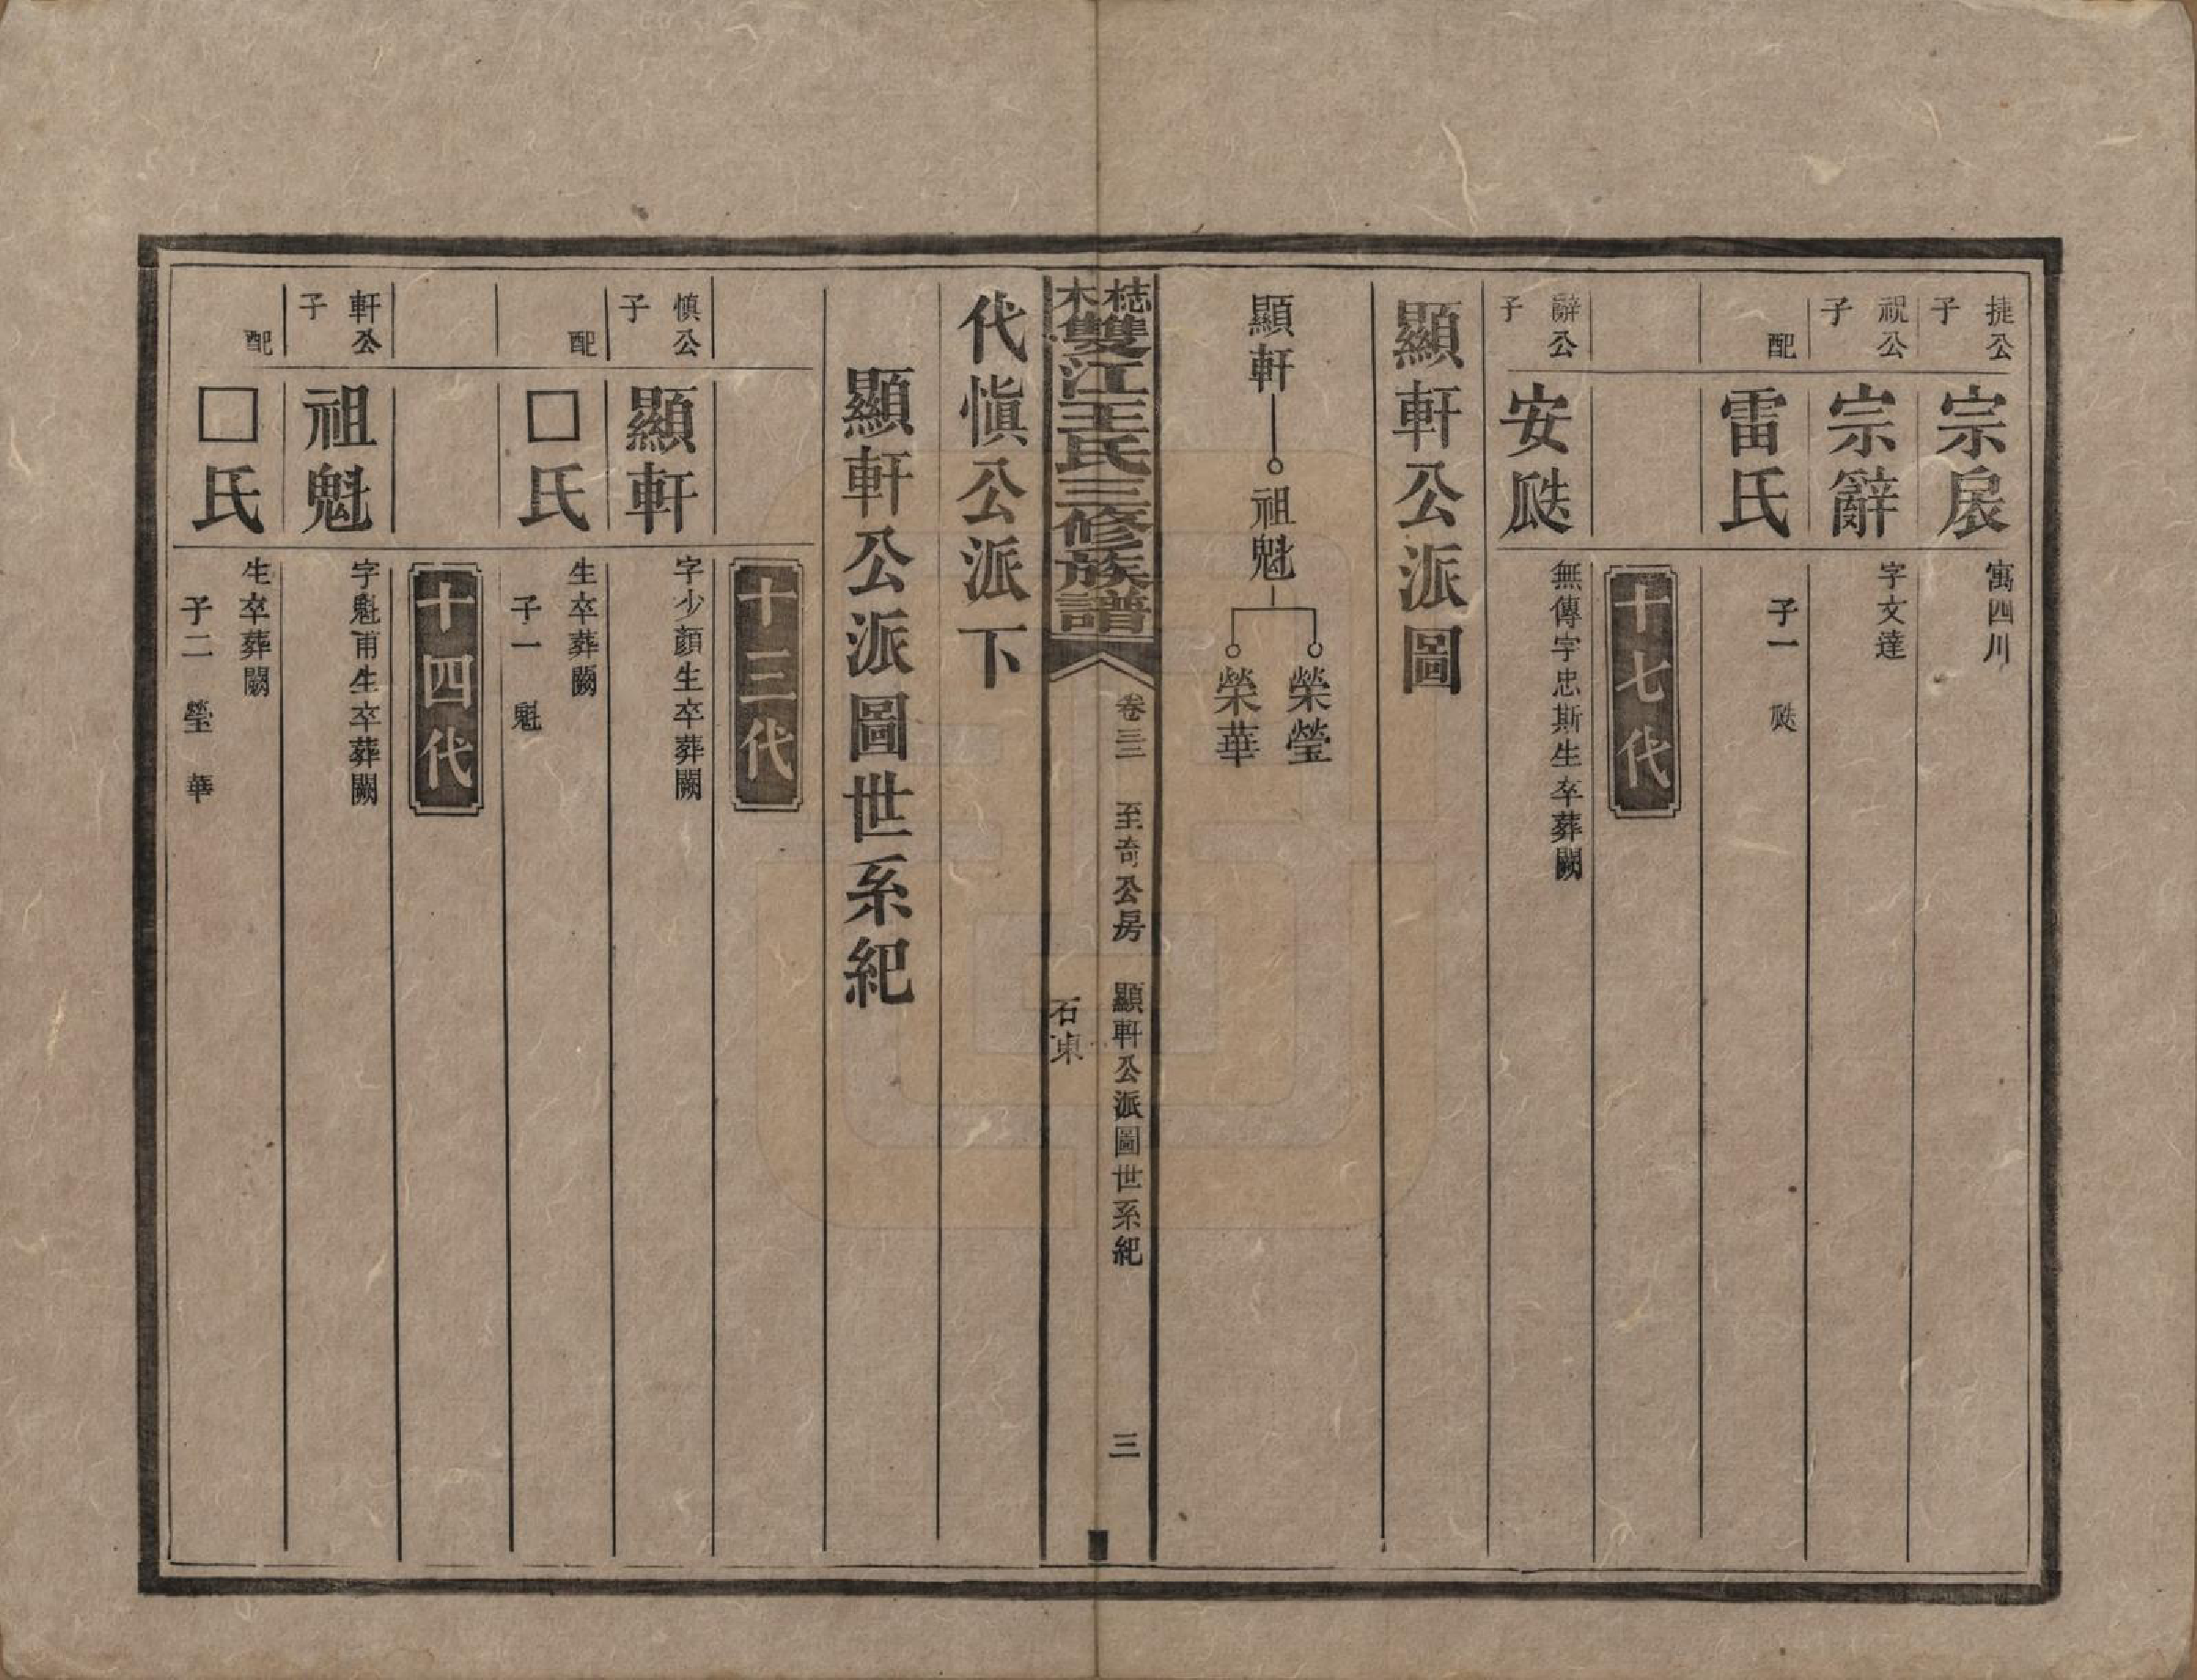 捷公子 宗扆 寓四川
祝公子 宗辭 字文達
配 雷氏 子一 瓞
十七代
辭公子 安瓞 無傳字忠斯生卒葬闕
顯軒公派圖
顯軒 祖魁 榮瑩
榮華
梽木雙江王氏三修族譜 卷三三 至奇公房 顯軒公派圖世系紀 三
石東
代慎公派下
顯軒公派圖世系紀
十三代
慎公子 顯軒 字少顏生卒葬闕
配 □氏 生卒葬闕
子一 魁
十四代
軒公子 祖魁 字魁甫生卒葬闕
配 □氏 生卒葬闕
子二 瑩 華